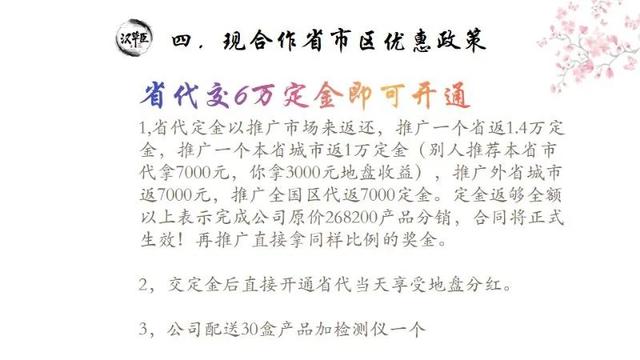 汉草臣
四．现合作省市区优惠政策
省代交6万定金即可开通
1,省代定金以推广市场来返还，推广一个省返1.4万定
金，推广一个本省城市返1万定金（别人推荐本省市
代拿7000元，你拿3000元地盘收益），推广外省城市
返7000元，推广全国区代返7000定金。定金返够全额
以上表示完成公司原价268200产品分销，合同将正式
生效！再推广直接拿同样比例的奖金。
2，交定金后直接开通省代当天享受地盘分红。
3，公司配送30盒产品加检测仪一个